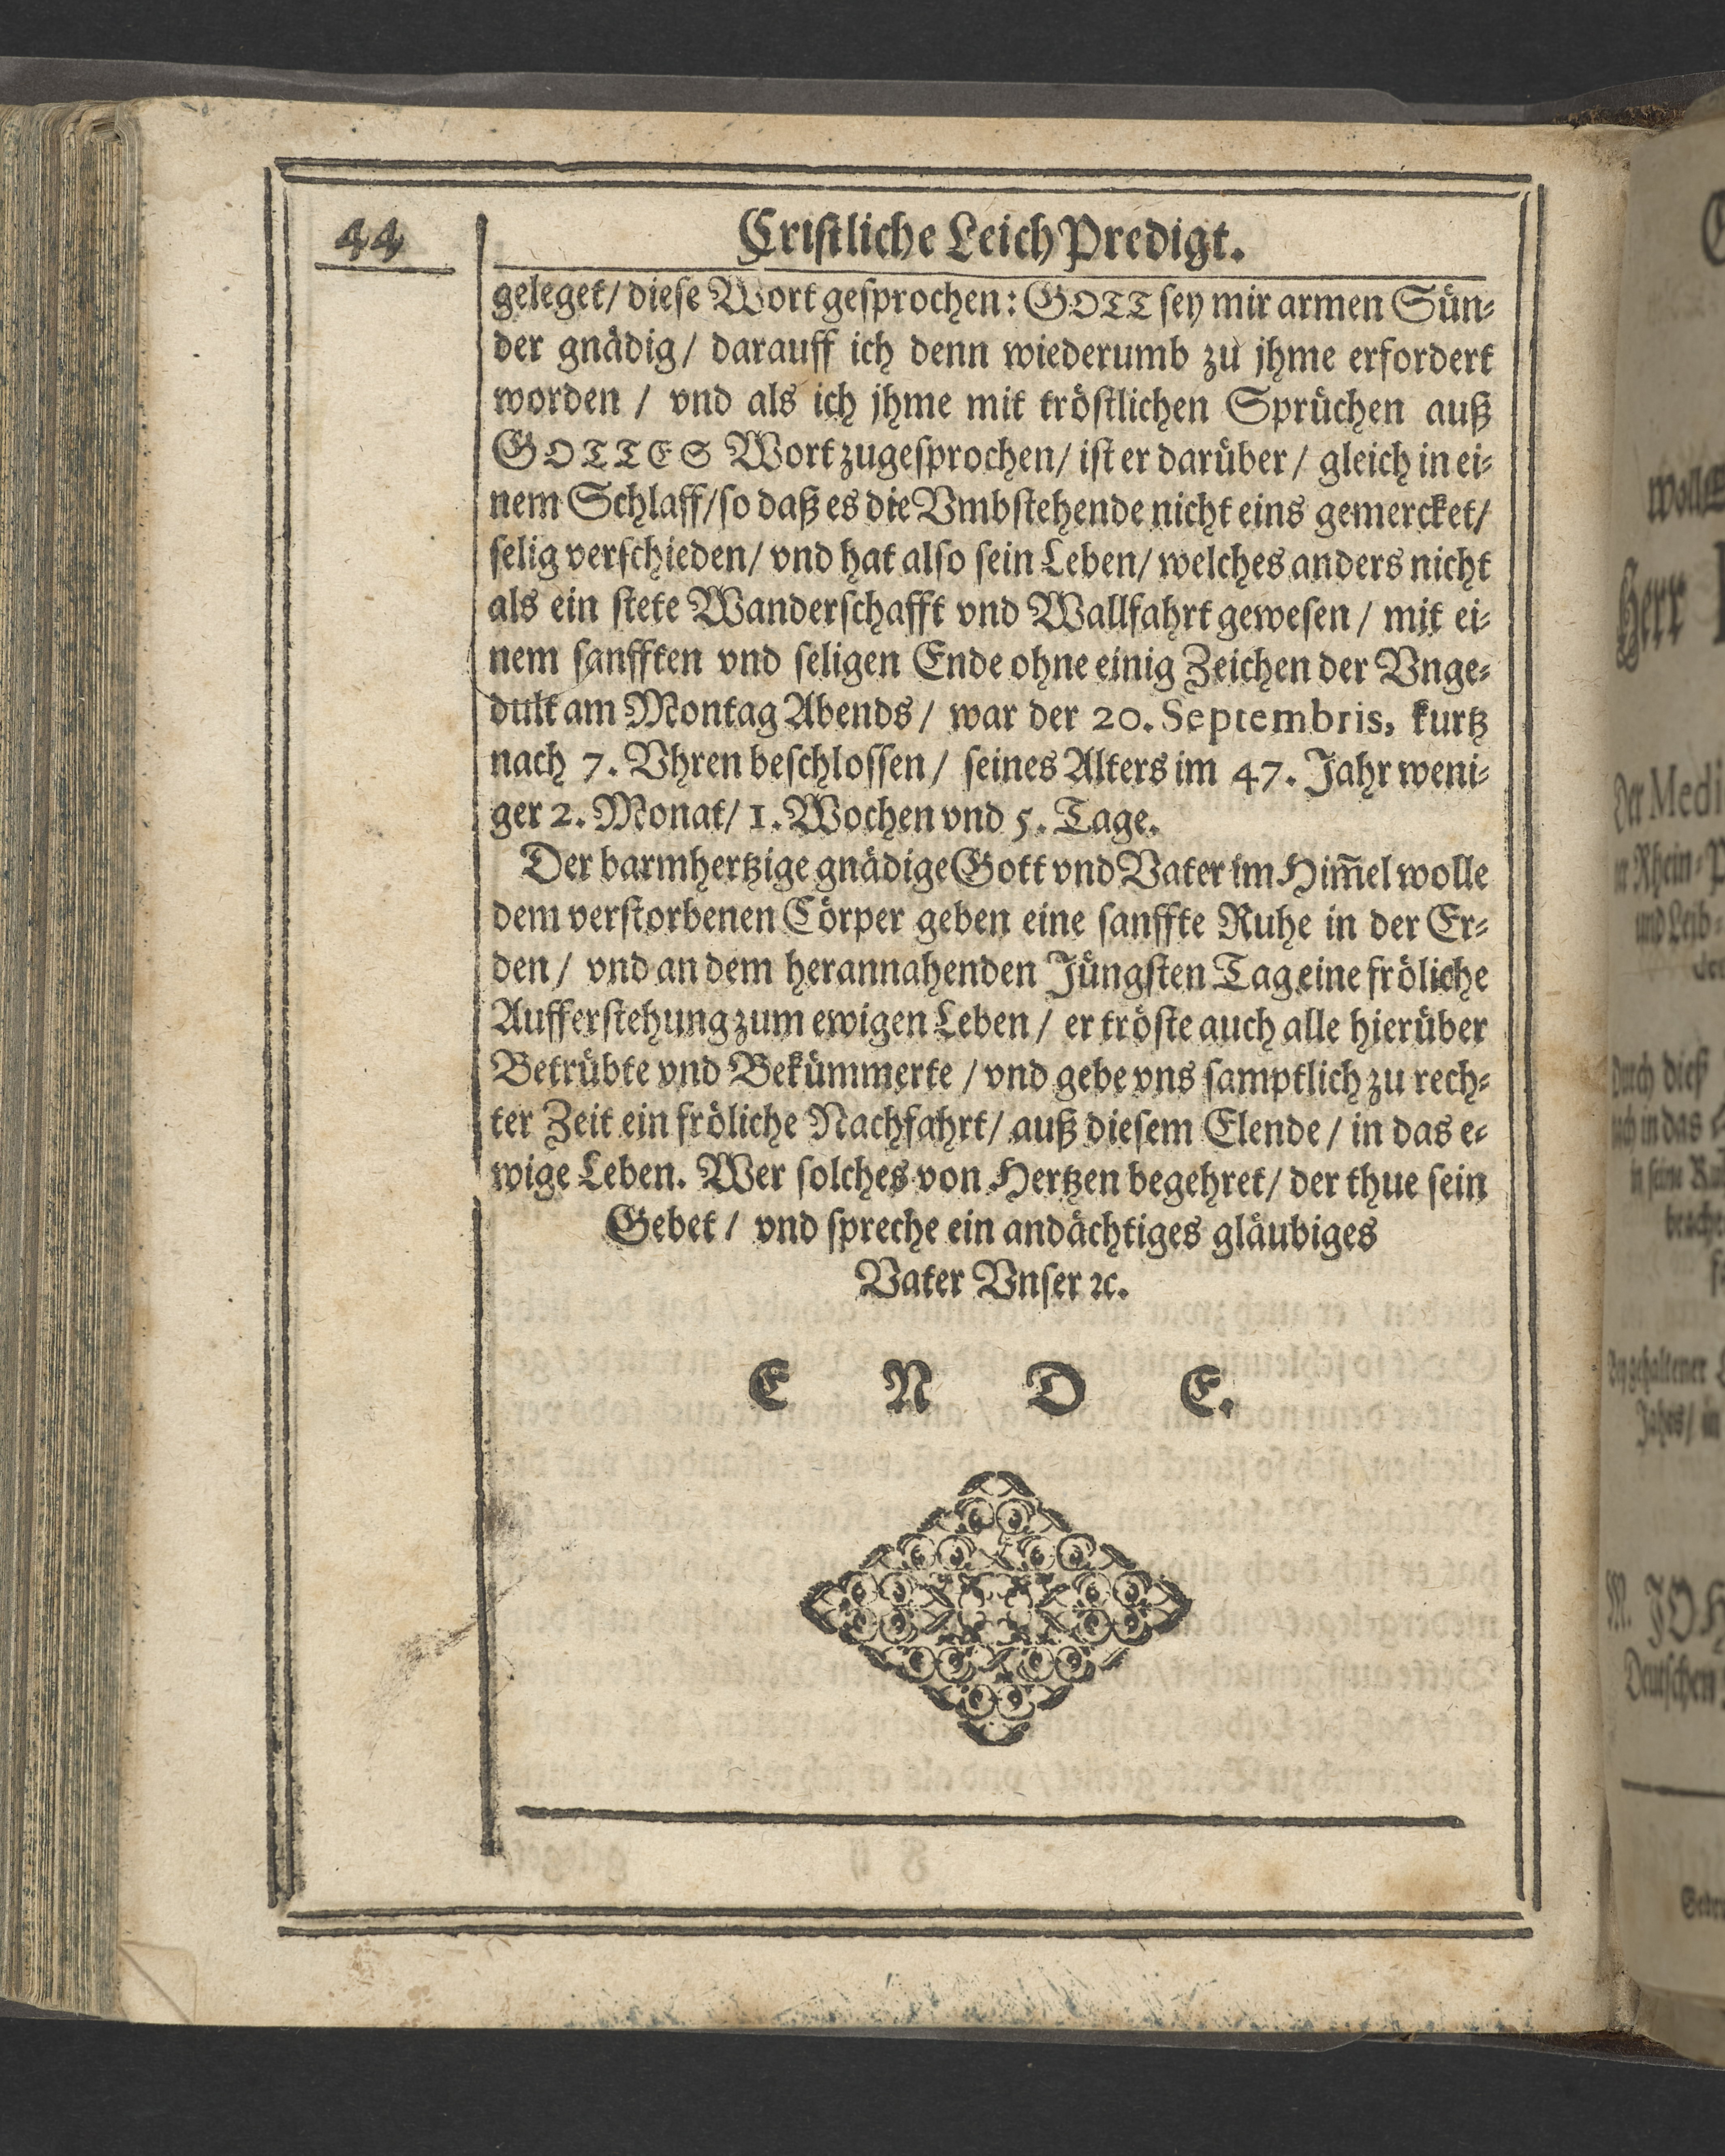 44
Cristliche Leich Predigt.
geleget/ diese Wort gesprochen: GOTT sey mir armen Sün-
der gnädig/ darauff ich denn wiederumb zu jhme erfordert
worden / vnd als ich jhme mit tröstlichen Sprüchen auß
GOTTES Wort zugesprochen/ ist er darüber/ gleich in ei-
nem Schlaff/ so daß es die Vmbstehende nicht eins gemercket/
selig verschieden/ vnd hat also sein Leben/ welches anders nicht
als ein stete Wanderschafft vnd Wallfahrt gewesen / mit ei-
nem sanfften vnd seligen Ende ohne einig Zeichen der Vnge-
dult am Montag Abends/ war der 20. Septembris, kurtz
nach 7. Vhren beschlossen/ seines Alters im 47. Jahr weni-
ger 2. Monat/ 1. Wochen vnd 5. Tage.
Der barmhertzige gnädige Gott vnd Vater im Him̃el wolle
dem verstorbenen Cörper geben eine sanffte Ruhe in der Er-
den/ vnd an dem herannahenden Jüngsten Tag eine fröliche
Aufferstehung zum ewigen Leben/ er tröste auch alle hierüber
Betrübte vnd Bekümmerte /vnd gebe vns samptlich zu rech-
ter Zeit ein fröliche Nachfahrt/ auß diesem Elende/ in das e-
wige Leben. Wer solches von Hertzen begehret/ der thue sein
Gebet / vnd spreche ein andächtiges gläubiges
Vater Vnser ꝛc.
E N D E.
woll
Herr
Der Medi
Rhein-P
und Leib-
Durch dieß
in das
in seine
gehaltener
Jahrs/ in
M. JOH
Deutschen